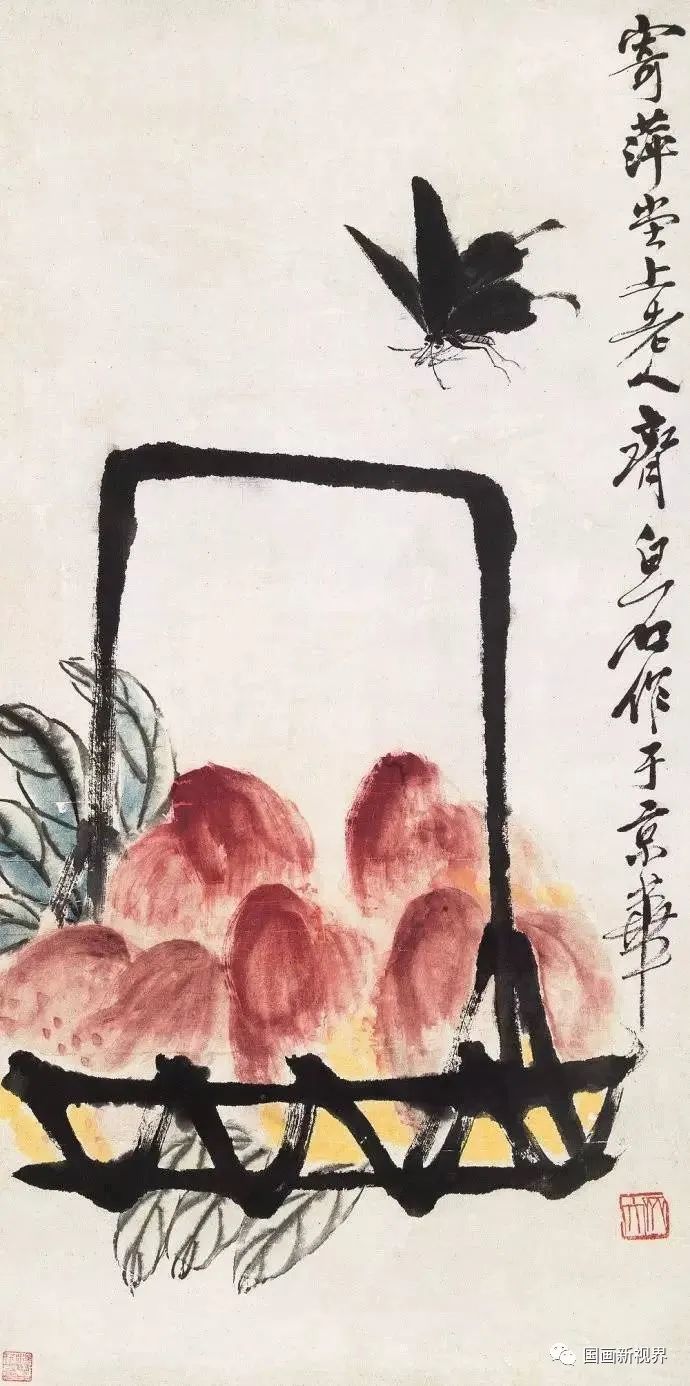 寄萍堂上老人齊白石作于京華
国画新视界